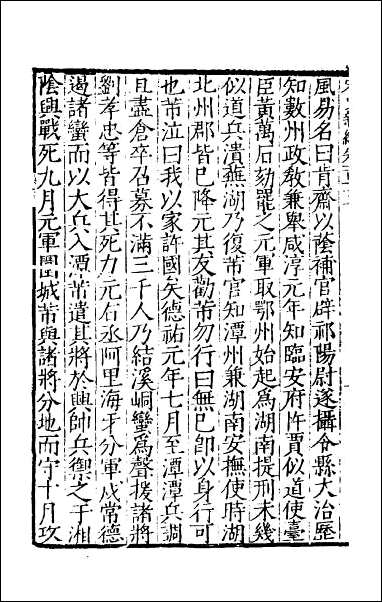 風易名曰肯齋以蔭補官辟祁陽尉遂攝令縣大治歷
知數州政敎兼舉咸淳元年知臨安府忤賈似道使臺
臣黃萬石劾罷之元軍取鄂州始起爲湖南提刑未幾
似道兵潰蕪湖乃復芾官知潭州兼湖南安撫使時湖
北州郡皆已降元其友勸芾勿行曰無已卽以身行可
也芾泣曰我以家許國矣德祐元年七月至潭潭兵調
且盡倉卒召募不滿三千人乃結溪峒蠻爲聲援諸將
劉孝忠等皆得其死力元右丞阿里海牙分軍戍常德
遏諸蠻而以大兵入潭芾遣其將於興帥兵禦之于湘
陰興戰死九月元軍圍城芾與諸將分地而守十月攻